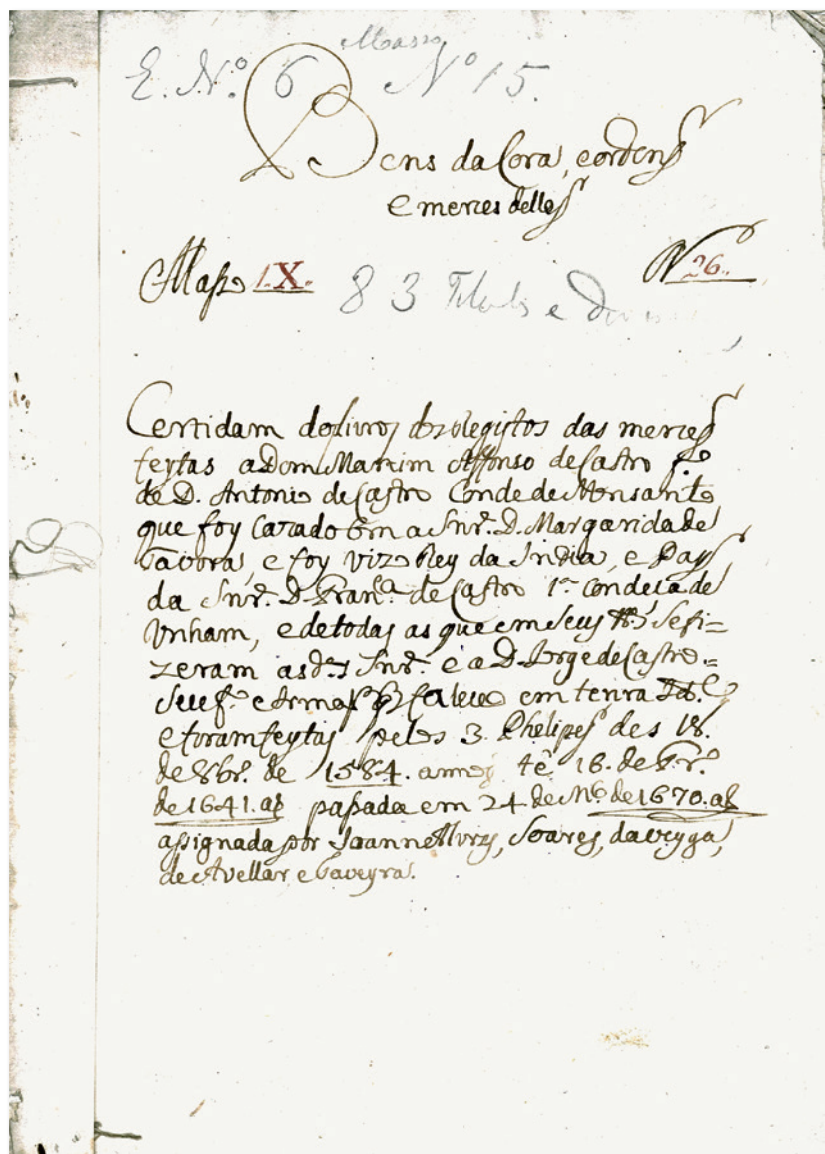 E. N.º 6 Masso N.º 15.
Bens da Coroa, e ordens
e merces delles
Masso IX. N 26.
83 Titulos e
Certidam dos livros dos Registos das merces
feytas a Dom Martim Affonso de Castro f.º
de D. Antonio de Castro Conde de Monsanto
que foy Cazado com a Snr.ª D. Margarida de
Tavora, e foy Vizo Rey da India, e Pay
da Snr.ª D. Fran.ca de Castro 1.ª Condeça de
Unham, e de todas as que em seus se fi=
zeram as d.as Snr.ª e a D. Jorge de Castro=
seu f.º e Irmaõ em tenra Id.e
e foram feytas pelos 3. Phelipes des 18.
de 8br.º de 1584. annos té 16. de
de 1641. as passada em 24 de de 1670. as
assignada por Joanne Alvrz, Soares, da veyga,
de Avellar, e Taveyra.